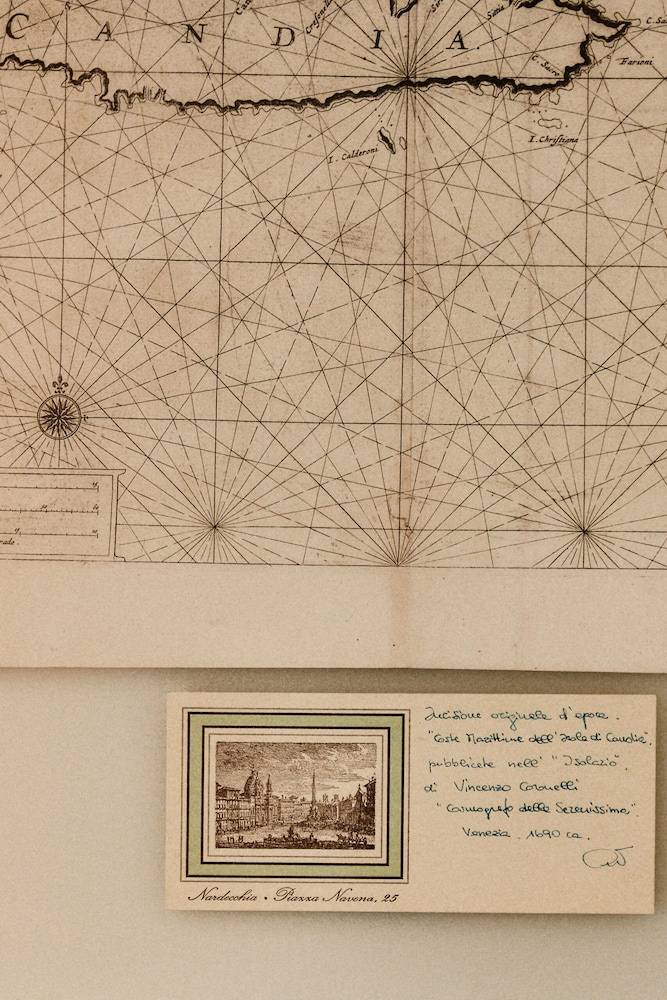 CANDIA.
C. Sacro
Farioni
I. Calderoni
I. Christiana
Incisione originale d'epoca.
"Coste Marittime dell'Isola di Candia",
pubblicate nell' "Isolario",
di Vincenzo Coronelli
"Cosmografo della Serenissima"
Venezia . 1690 ca.
Nardecchia • Piazza Navona, 25